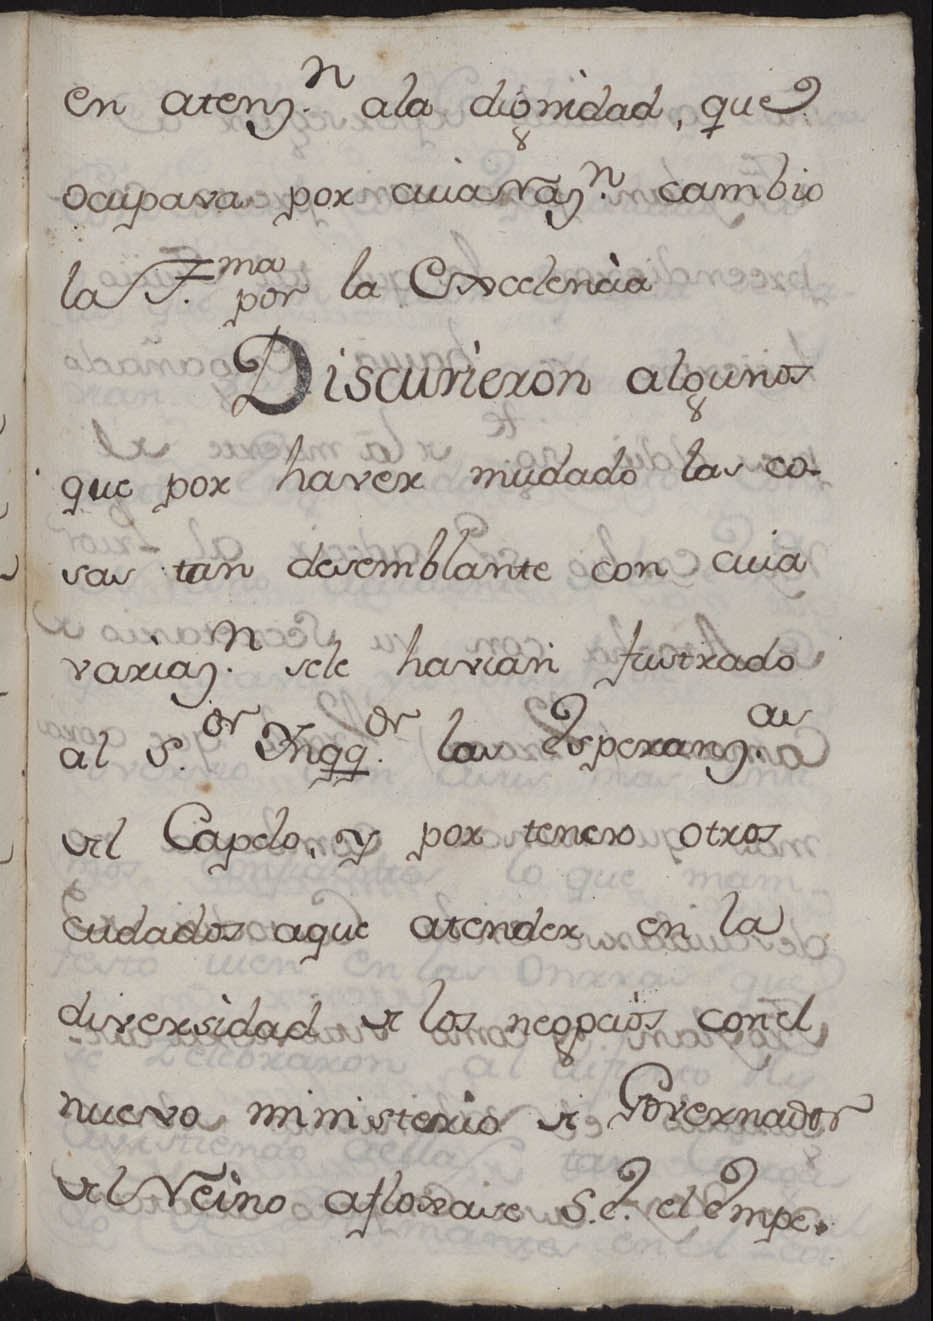 en atenz.n ala dignidad, que
ocupava por cuia razn. cambio
la Yll.ma por la Excelencia
Discurrieron algunos
que por haver mudado las co-
sas tan desemblante con cuia
variaz.n sele havian fustrado
al s.or Ynqq.or las Esperanz.as
del Capelo, y por tenero otros
cudados aque atender en la
diversidad de los negocios con el
nuevo ministerio de Governador
del Reino afloxase S.E. el empe.